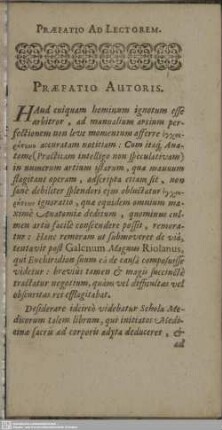 PRÆFATIO AD LECTOREM.
PRÆFATIO AUTORIS.
HAud cuiquam hominum ignotum esse
arbitror, ad manualium artium per-
fectionem non leve momentum afferre
accuratam notitiam: Cum itaq; Ana-
tome (Practicam intelligo non speculativam)
in numerum artium istarum, qua manuum
flagitant operam, adscripta etiam sit, non
sanè debiliter splendori ejus obluctatur
ignoratio, qua equidem omnium ma-
ximè Anatomia deditum, quominus cul-
men artis facile conscendere possit, remora-
tur: Hanc remoram ut submoveret de viâ,
tentavit post Galenum Magnus Riolanus,
qui Enchiridium suum eâ de causâ composuisse
videtur: brevius tamen & magis succinctè
tractatur negotium, quàm vel difficultas vel
obscuritas rei efflagitabat.
Desiderare idcirco videbatur Schola Me-
dicorum talem librum, qui initiatos Medi-
cinæ sacris ad corporis adyta deduceret, &
ad